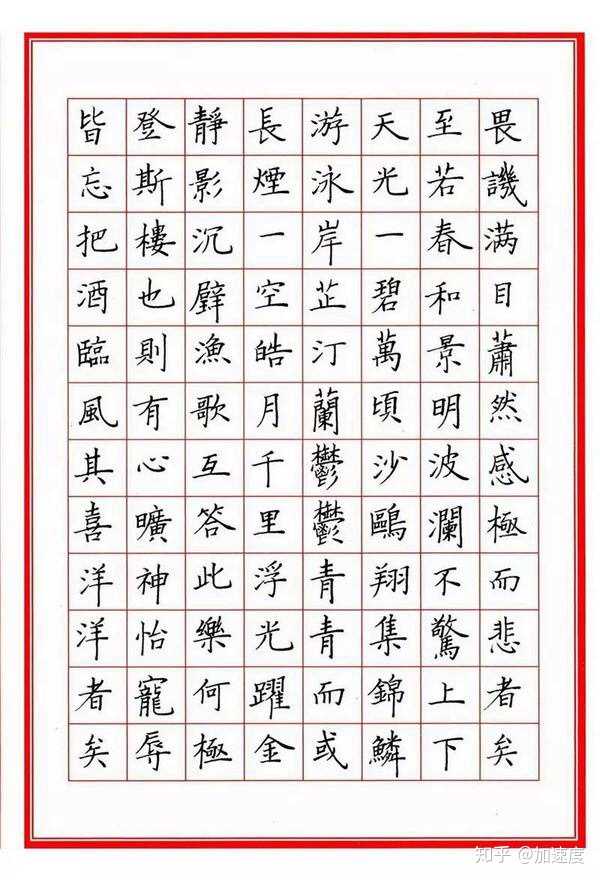 畏譏满目蕭然感極而悲者矣
至若春和景明波瀾不驚上下
天光一碧萬頃沙鷗翔集錦鱗
游泳岸芷汀蘭鬱鬱青青而或
長煙一空皓月千里浮光躍金
靜影沉璧漁歌互答此樂何極
登斯樓也則有心曠神怡寵辱
皆忘把酒臨風其喜洋洋者矣
知乎 @加速度